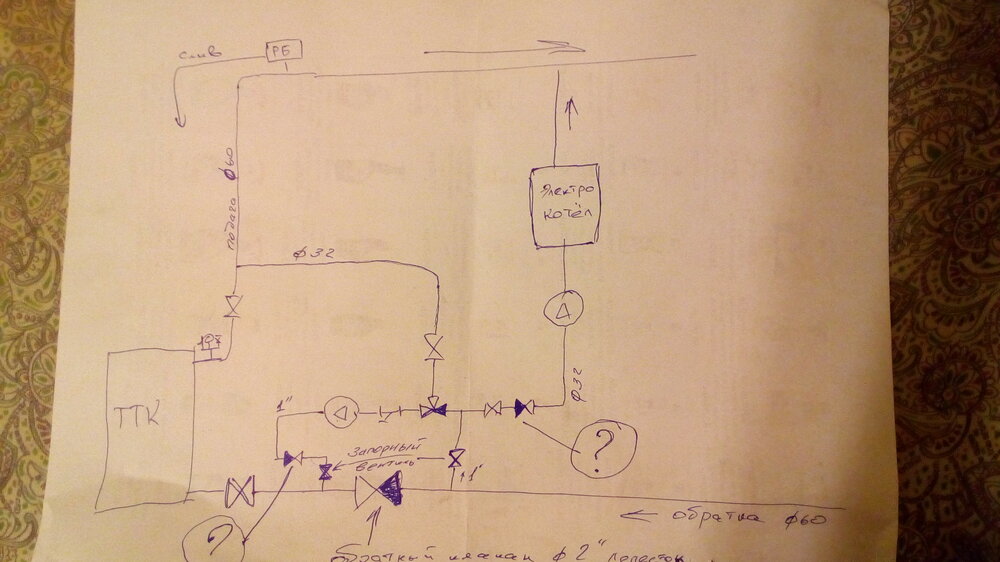 слив
РБ
подача ф60
Электро
котёл
ф32
ТТК
1"
ф32
Запорный
вентиль
?
1"
обратка ф60
?
обратный клапан ф 2" лепестк